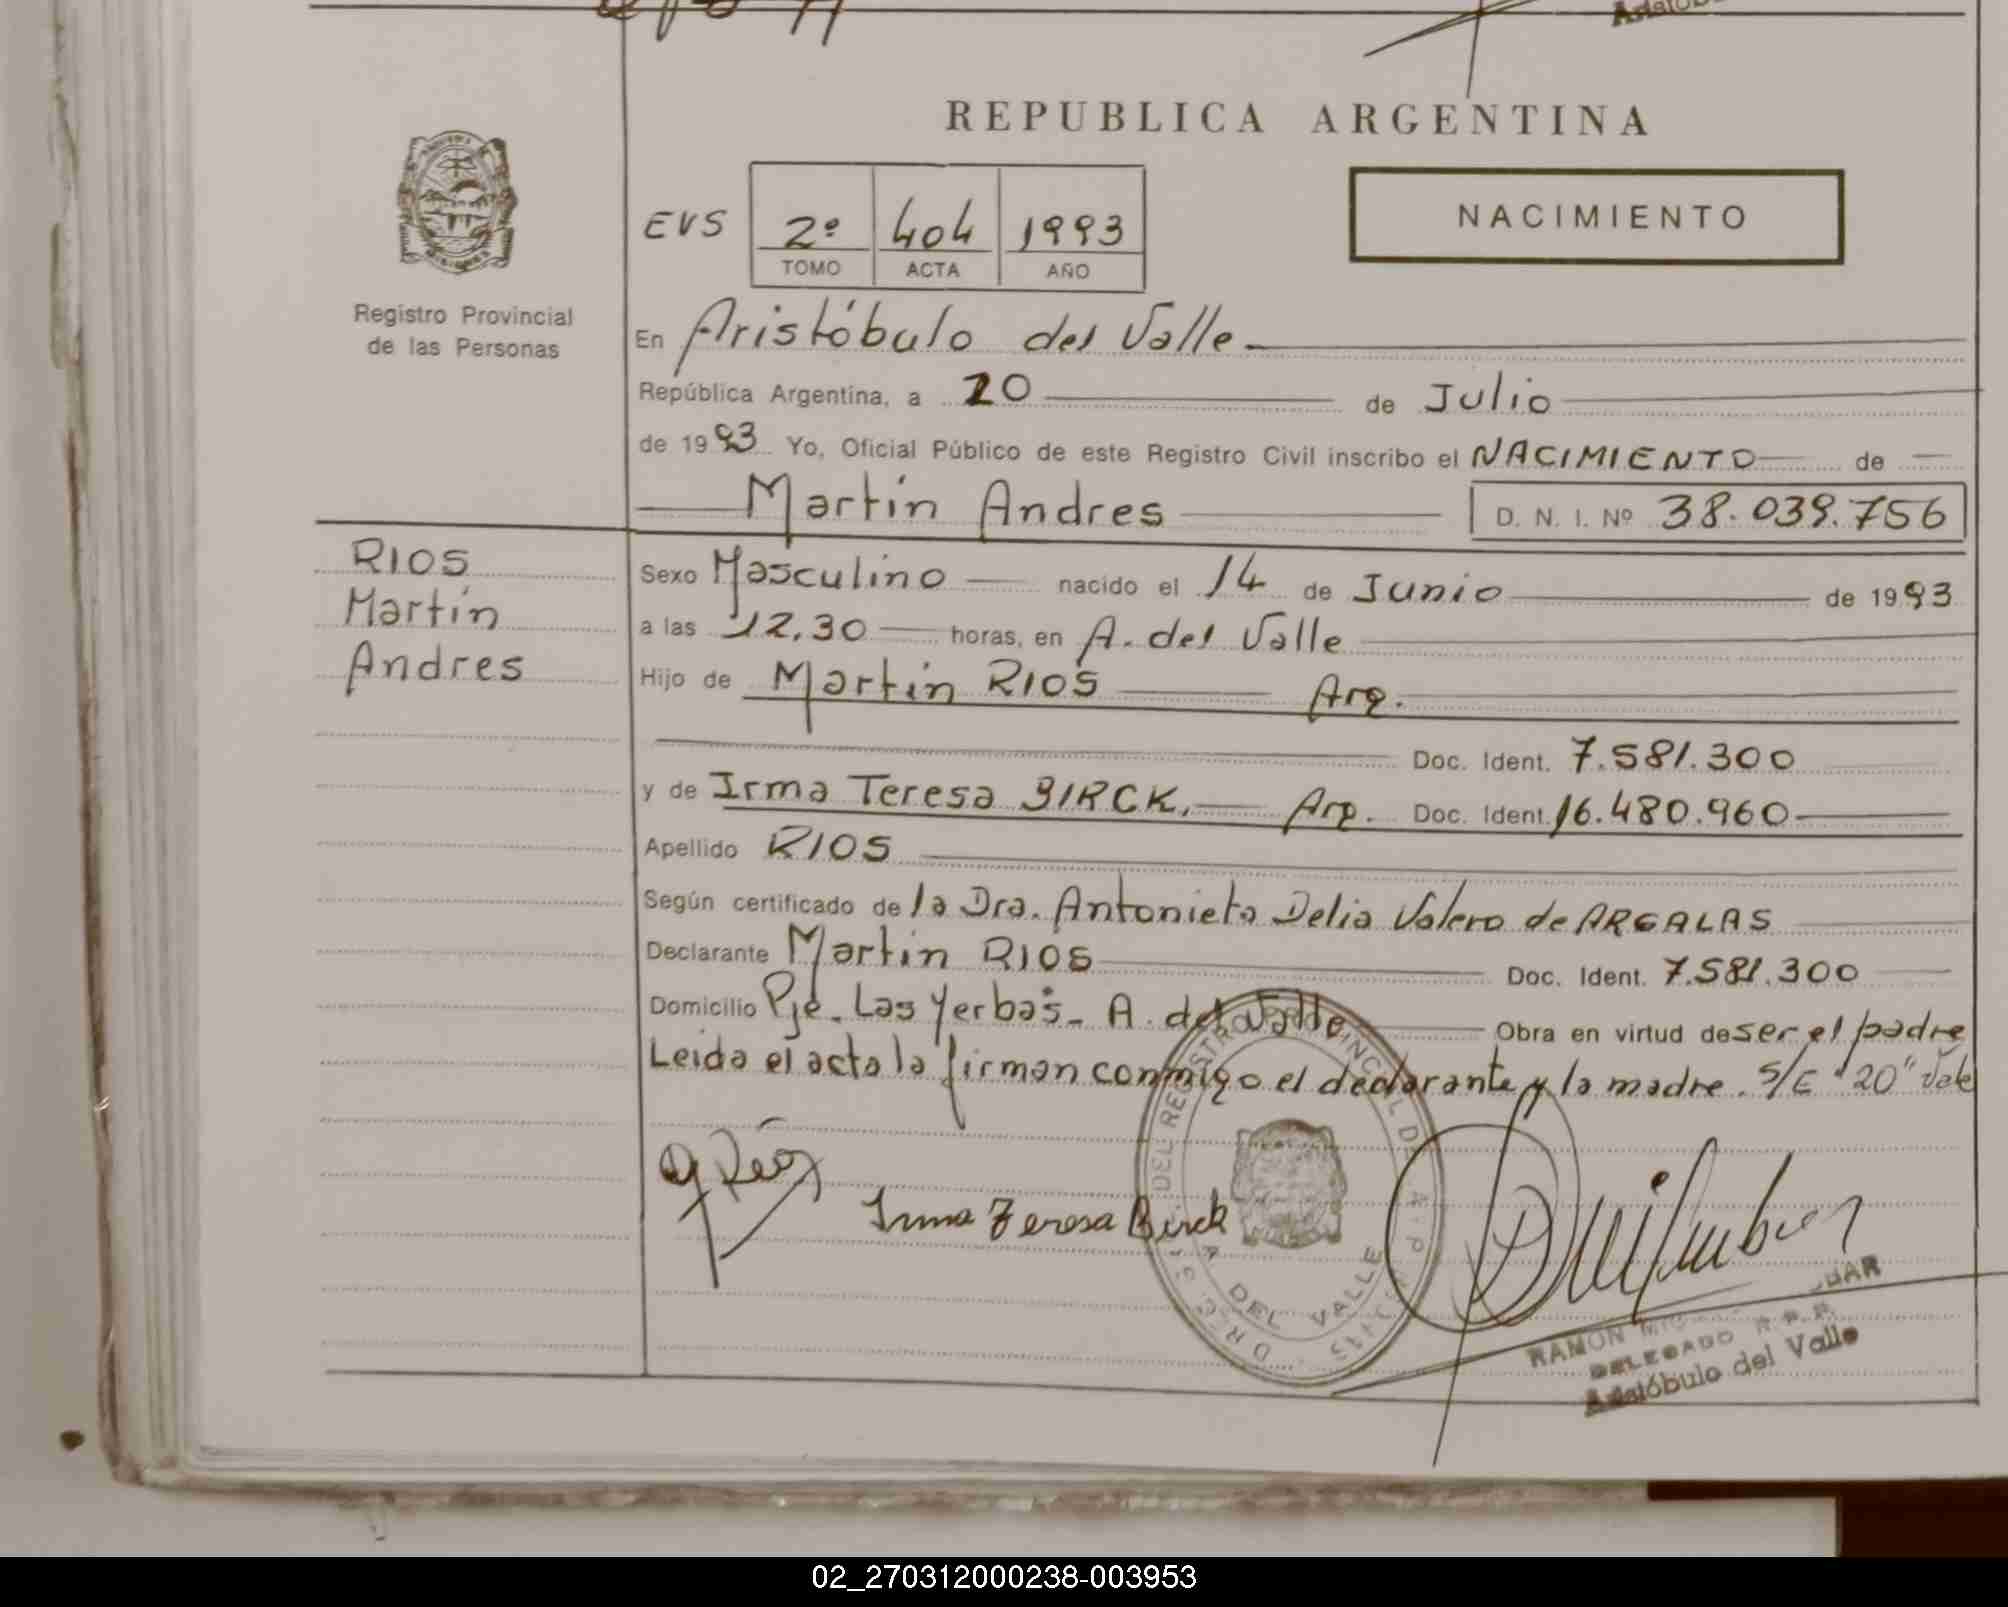 REPUBLICA ARGENTINA
NACIMIENTO
EVS 2º 404 1993
TOMO ACTA AÑO
Registro Provincial
de las Personas
En Aristóbulo del Valle
República Argentina, a 20 de Julio
de 1993 Yo, Oficial Público de este Registro Civil inscribo el NACIMIENTO de
Martín Andres D. N. I. Nº 38.039.756
RIOS
Martín
Andres
Sexo Masculino nacido el 14 de Junio de 1993
a las 12,30 horas, en A. del Valle
Hijo de Martín RIOS Arg.
Doc. Ident. 7.581.300
y de Irma Teresa BIRCK, Arg. Doc. Ident. 16.480.960
Apellido RIOS
Según certificado de la Dra. Antonieta Delia Valero de ARGALAS
Declarante Martín RIOS Doc. Ident. 7.581.300
Domicilio Pje. Las Yerbas - A. del Valle Obra en virtud de ser el padre
Leida el acta la firman conmigo el declarante y la madre. S/E "20" Vale
Irma Teresa Birck
DEL VALLE
RAMON
DELEGADO R.P.P.
Aristóbulo del Valle
02_270312000238-003953